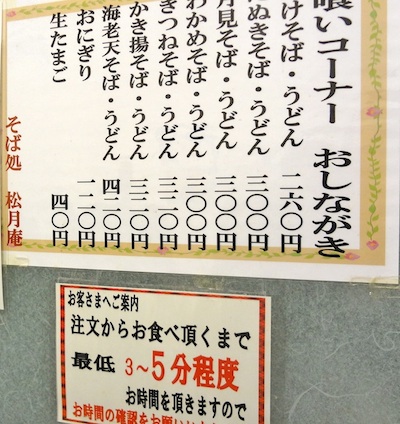 喰いコーナー おしながき
けそば・うどん 二六〇円
ぬきそば・うどん 三〇〇円
月見そば・うどん 三〇〇円
わかめそば・うどん 三〇〇円
きつねそば・うどん 三二〇円
かき揚そば・うどん 三二〇円
海老天そば・うどん 四二〇円
おにぎり 一二〇円
生たまご 四〇円
そば処 松月庵
お客さまへご案内
注文からお食べ頂くまで
最低 3～5分程度
お時間を頂きますので
お時間の確認をお願い